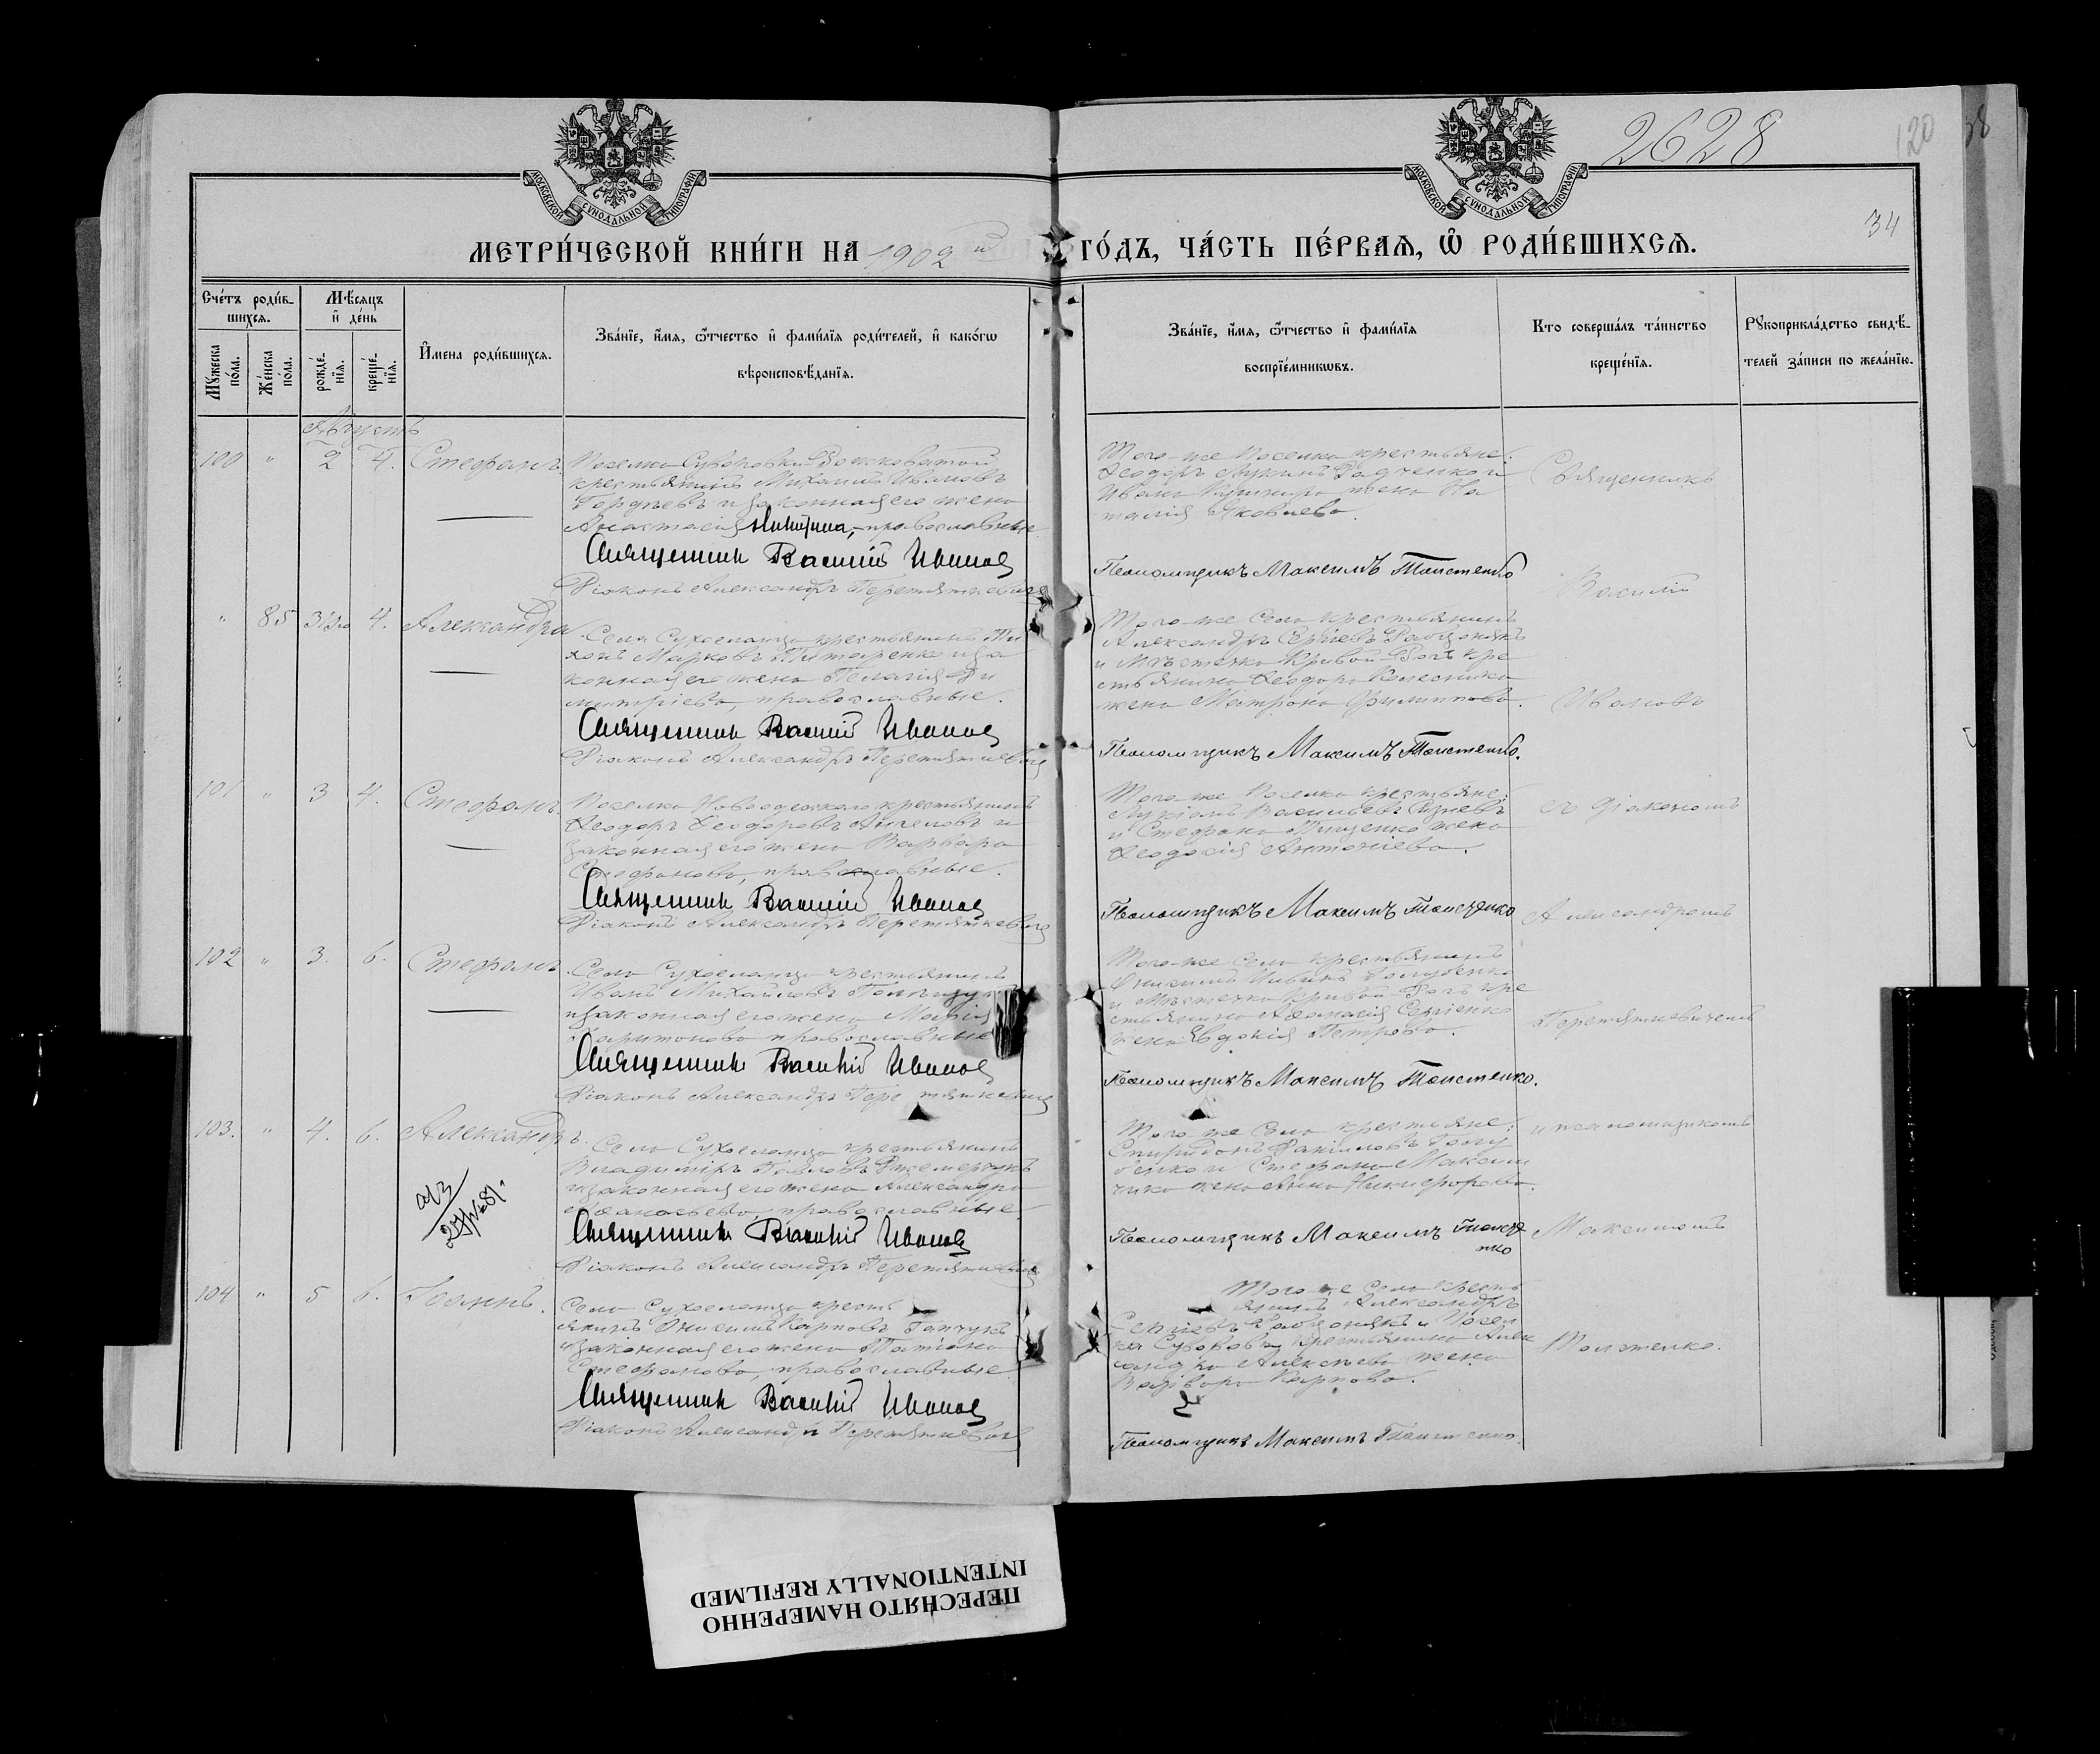 2628
120
38
МОСКОВСКОЙ СѴНОДАЛЬНОЙ ТИПОГРАФІИ
МОСКОВСКОЙ СѴНОДАЛЬНОЙ ТИПОГРАФІИ
34
МЕТРИ́ЧЕСКОЙ КНИ́ГИ НА 1902 й ГО́ДЪ, ЧА́СТЬ ПЕ́РВАѦ, Ѿ РОДИ́ВШИХСѦ.
Сче́тъ роди́в-
шихсѧ.
Мꙋ́жеска по́ла.
Же́нска по́ла.
Мѣ́сѧцъ
и҆ де́нь
рожде́-
нїѧ.
креще́-
нїѧ.
И҆мена роди́вшихсѧ.
Зва́нїе, и҆́мѧ, ѻ҆́тчество и҆ фами́лїѧ роди́телей, и҆ како́гѡ
вѣроисповѣ́данїѧ.
Зва́нїе, и҆́мѧ, ѻ҆́тчество и҆ фами́лїѧ
воспрїе́мникѡвъ.
Кто соверша́лъ та́инство
креще́нїѧ.
Рꙋкоприкла́дство свидѣ́-
телей за́писи по жела́нїю.
Августъ
100 " 2 4. Стефанъ
Поселка Суворовки
крестьянинъ Михаилъ Ивановъ
и законная его жена
Анастасія Никитина, православные
Священникъ Василій Ивановъ
Діаконъ Александръ Перетяткевичъ
Того-же поселка крестьяне:
Ѳеодоръ Лукинъ Радченко и
Ивана жена На
талія Яковлева.
Псаломщикъ Максимъ Толстенко
Священникъ
Василій
" 85 31 4. Александра
Села Сухоеланца крестьянинъ Ти
хонъ Марковъ Титаренко и за
конная его жена Пелагія Ди
митріева, православные.
Священникъ Василій Ивановъ
Діаконъ Александръ Перетяткевичъ
Того-же села крестьянинъ
Александръ Сергіевъ
и мѣстечка Кривой-Рогъ кре
стьянина Ѳеодора Колесника
жена Матрона Филиппова.
Псаломщикъ Максимъ Толстенко.
Ивановъ
101 " 3 4. Стефанъ
Поселка крестьянинъ
Ѳеодоръ Ѳеодоровъ и
законная его жена Варвара
Стефанова, православные.
Священникъ Василій Ивановъ
Діаконъ Александръ Перетяткевичъ
Того-же поселка крестьяне:
Васильевъ
и Стефана Тищенко жена
Ѳеодосія Антоніева.
Псаломщикъ Максимъ Толстенко
съ діакономъ
Александромъ
102 " 3. 6. Стефанъ
Села Сухоеланца крестьянинъ
Иванъ Михайловъ
и законная его жена Марія
Харитонова православные
Священникъ Василій Ивановъ
Діаконъ Александръ Перетяткевичъ
Того-же села крестьянинъ
Онисимъ Голубенко
и мѣстечка Кривой-Рогъ кре
стьянина Аѳанасія Сергіенко
жена Евдокія Петрова.
Псаломщикъ Максимъ Толстенко.
Перетяткевичемъ
103. " 4. 6. Александръ.
Села Сухоеланца крестьянинъ
Владиміръ Павловъ
и законная его жена Александра
Аѳанасьева, православные.
Священникъ Василій Ивановъ
Діаконъ Александръ Перетяткевичъ
Того же села крестьяне:
Спиридонъ Даніиловъ Голу
бенко и Стефана Максим
чика жена Анна Никифорова.
Псаломщикъ Максимъ Толсте
нко
и псаломщикомъ
Максимомъ
104 " 5 6. Іоаннъ.
Села Сухоеланца кресть
янинъ Онисимъ Карповъ
и законная его жена Татіана
Стефанова, православные.
Священникъ Василій Ивановъ
Діаконъ Александръ Перетяткевичъ
Того же села кресть
янинъ Александръ
Сергіевъ и посел
ка Суворовки крестьянина Алек
сандра Алексѣева жена
Варвара Карпова.
Псаломщикъ Максимъ Толстенко
Толстенко.
ПЕРЕСНЯТО НАМЕРЕННО
INTENTIONALLY REFILMED